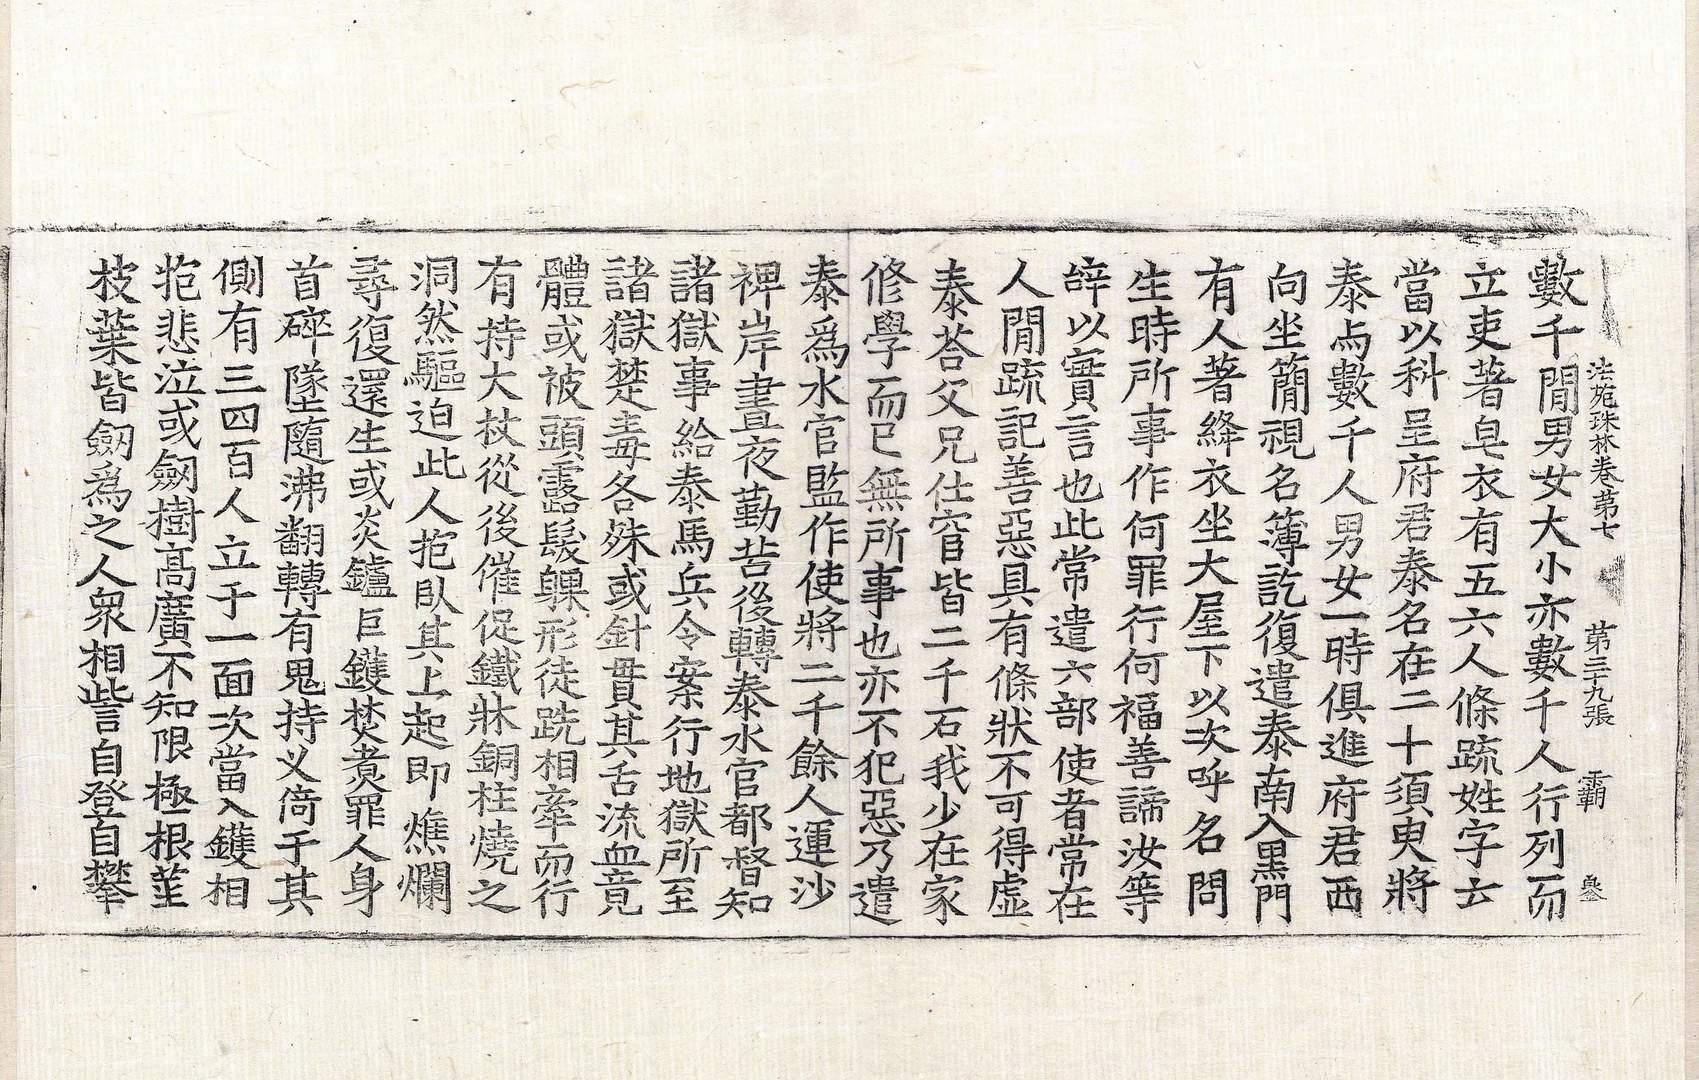 法苑珠林卷第七　第三十九張　霸
數千閒男女大小亦數千人行列而
立吏著皁衣有五六人條疏姓字云
當以科呈府君泰名在二十須臾將
泰与數千人男女一時俱進府君西
向坐簡視名簿訖復遣泰南入黑門
有人著絳衣坐大屋下以次呼名問
生時所事作何罪行何福善諦汝等
辞以實言也此常遣六部使者常在
人閒疏記善惡具有條狀不可得虛
泰荅父兄仕宦皆二千石我少在家
修學而已無所事也亦不犯惡乃遣
泰爲水官監作使將二千餘人運沙
裨岸晝夜勤苦後轉泰水官都督知
諸獄事給泰馬兵令案行地獄所至
諸獄楚毒各殊或針貫其舌流血竟
體或被頭露髮躶形徒跣相牽而行
有持大杖從後催促鐵牀銅柱燒之
洞然驅迫此人抱臥其上起即燋爛
尋復還生或炎鑪巨鑊焚煑罪人身
首碎墜隨沸翻轉有鬼持叉倚于其
側有三四百人立于一面次當入鑊相
抱悲泣或劒樹高廣不知限極根莖
枝葉皆劒爲之人衆相訾自登自攀